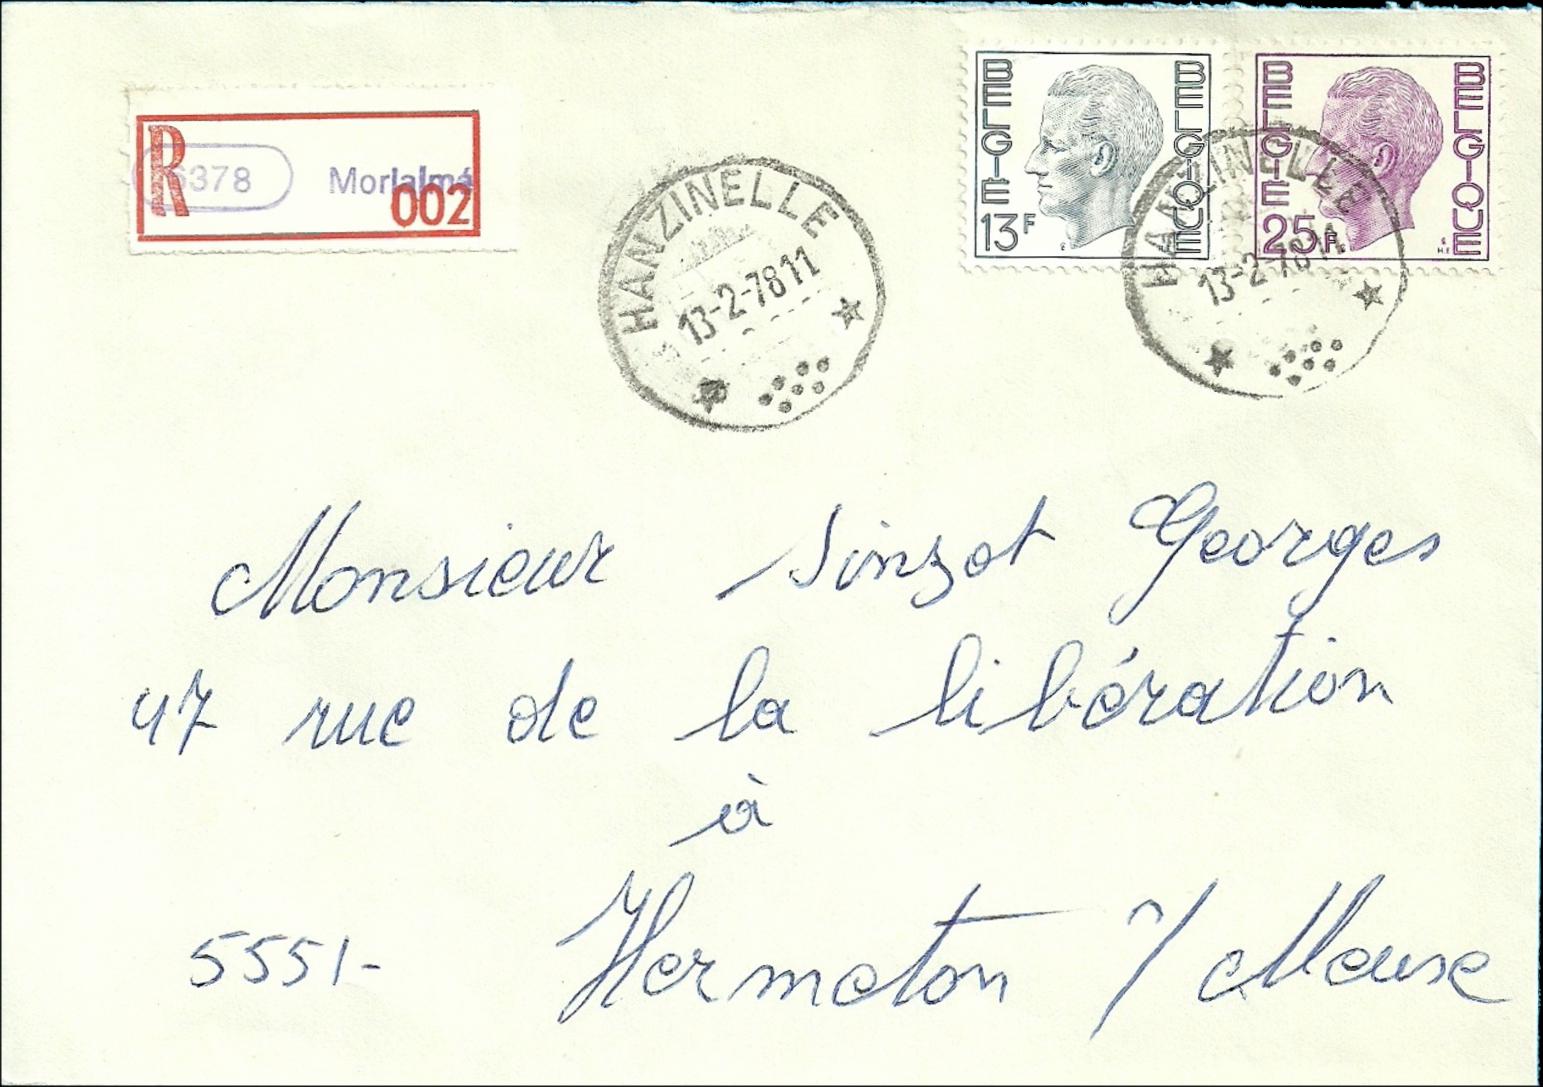 BELGIE 13F BELGIQUE
BELGIE 25F BELGIQUE
R 6378 Morialmé
002
HANZINELLE
13-2-78 11
HANZINELLE
13-2-78 11
Monsieur Sinzot Georges
47 rue de la libération
à
5551- Hermeton s/ Meuse